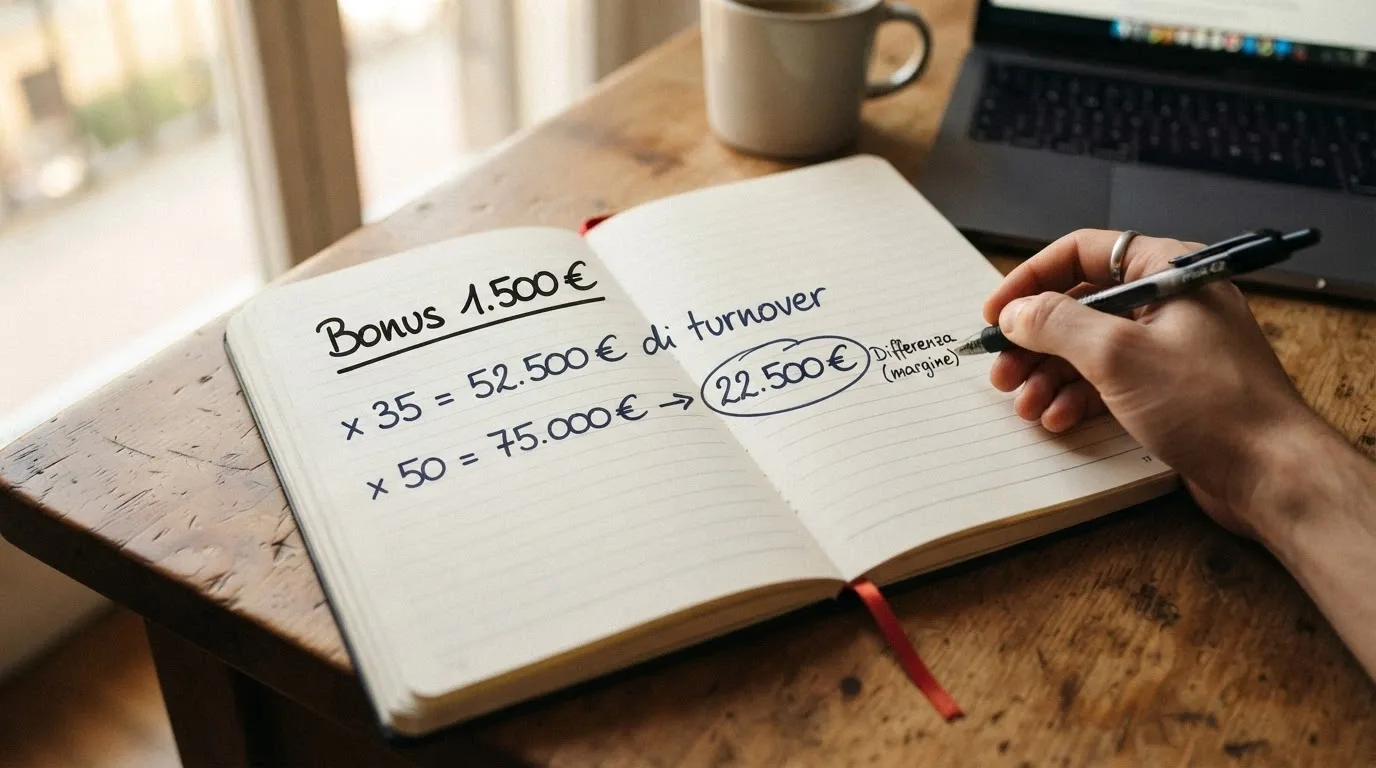 Bonus 1.500 €
× 35 = 52.500 € di turnover
× 50 = 75.000 € → 22.500 €
Differenza
(margine)